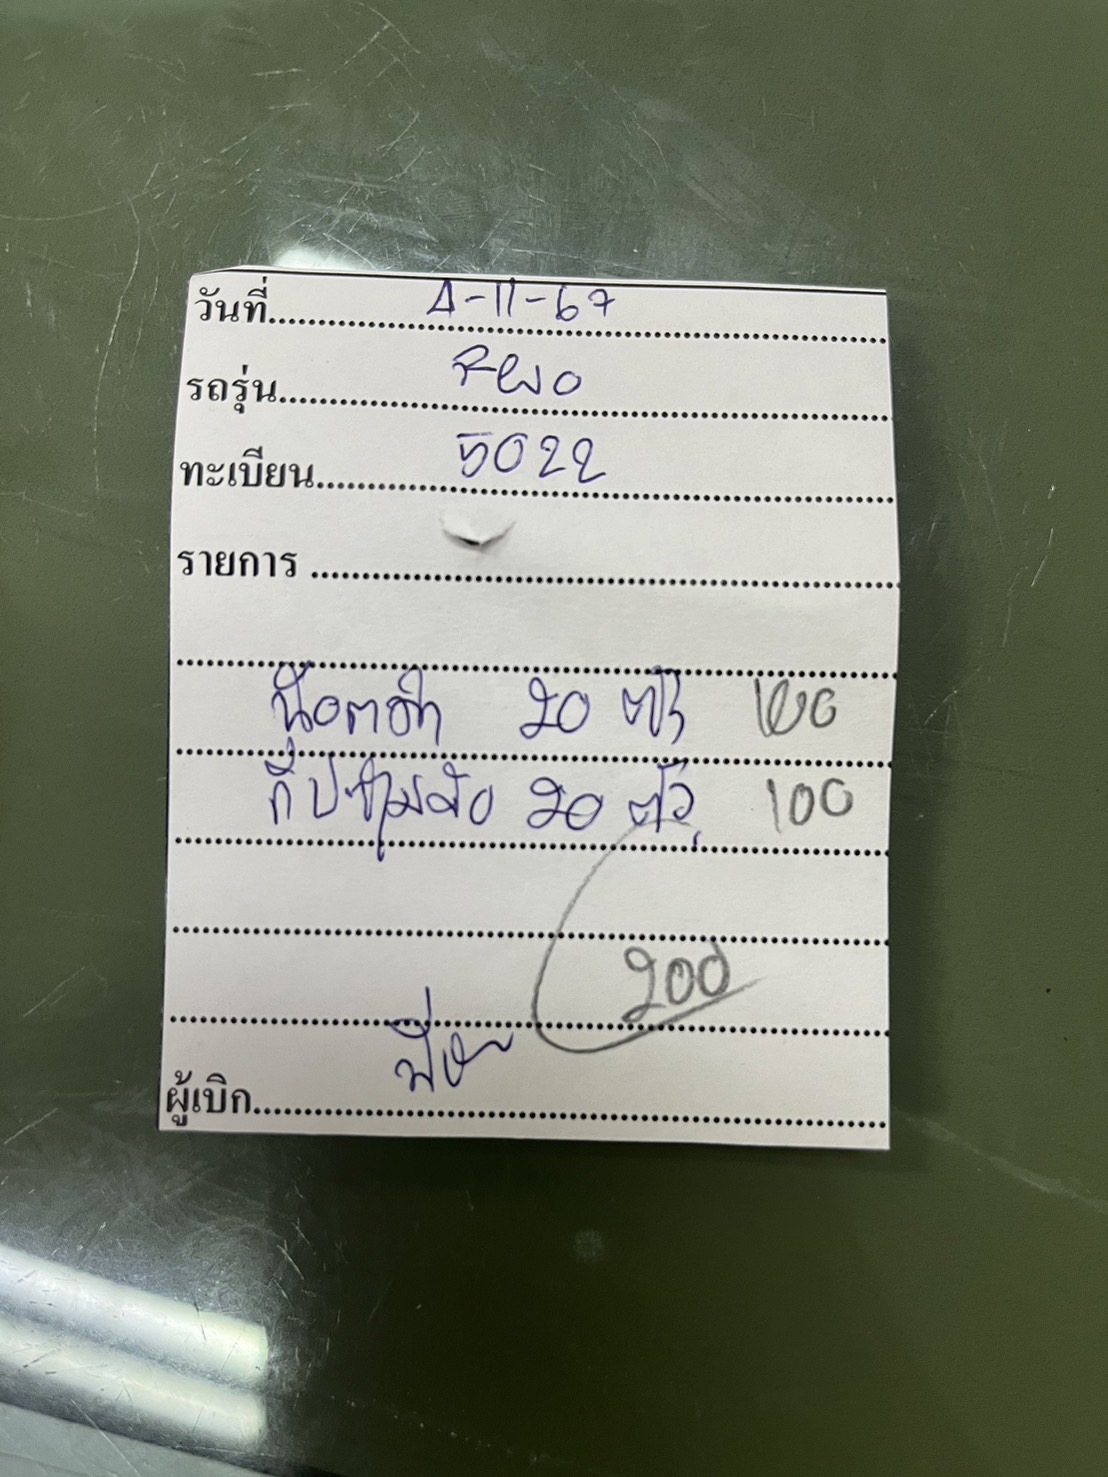 วันที่ 4-11-67
รถรุ่น Revo
ทะเบียน 5022
รายการ
น๊อตดำ 20 ตัว 100
กิ๊ป 20 ตัว 100
200
ผู้เบิก